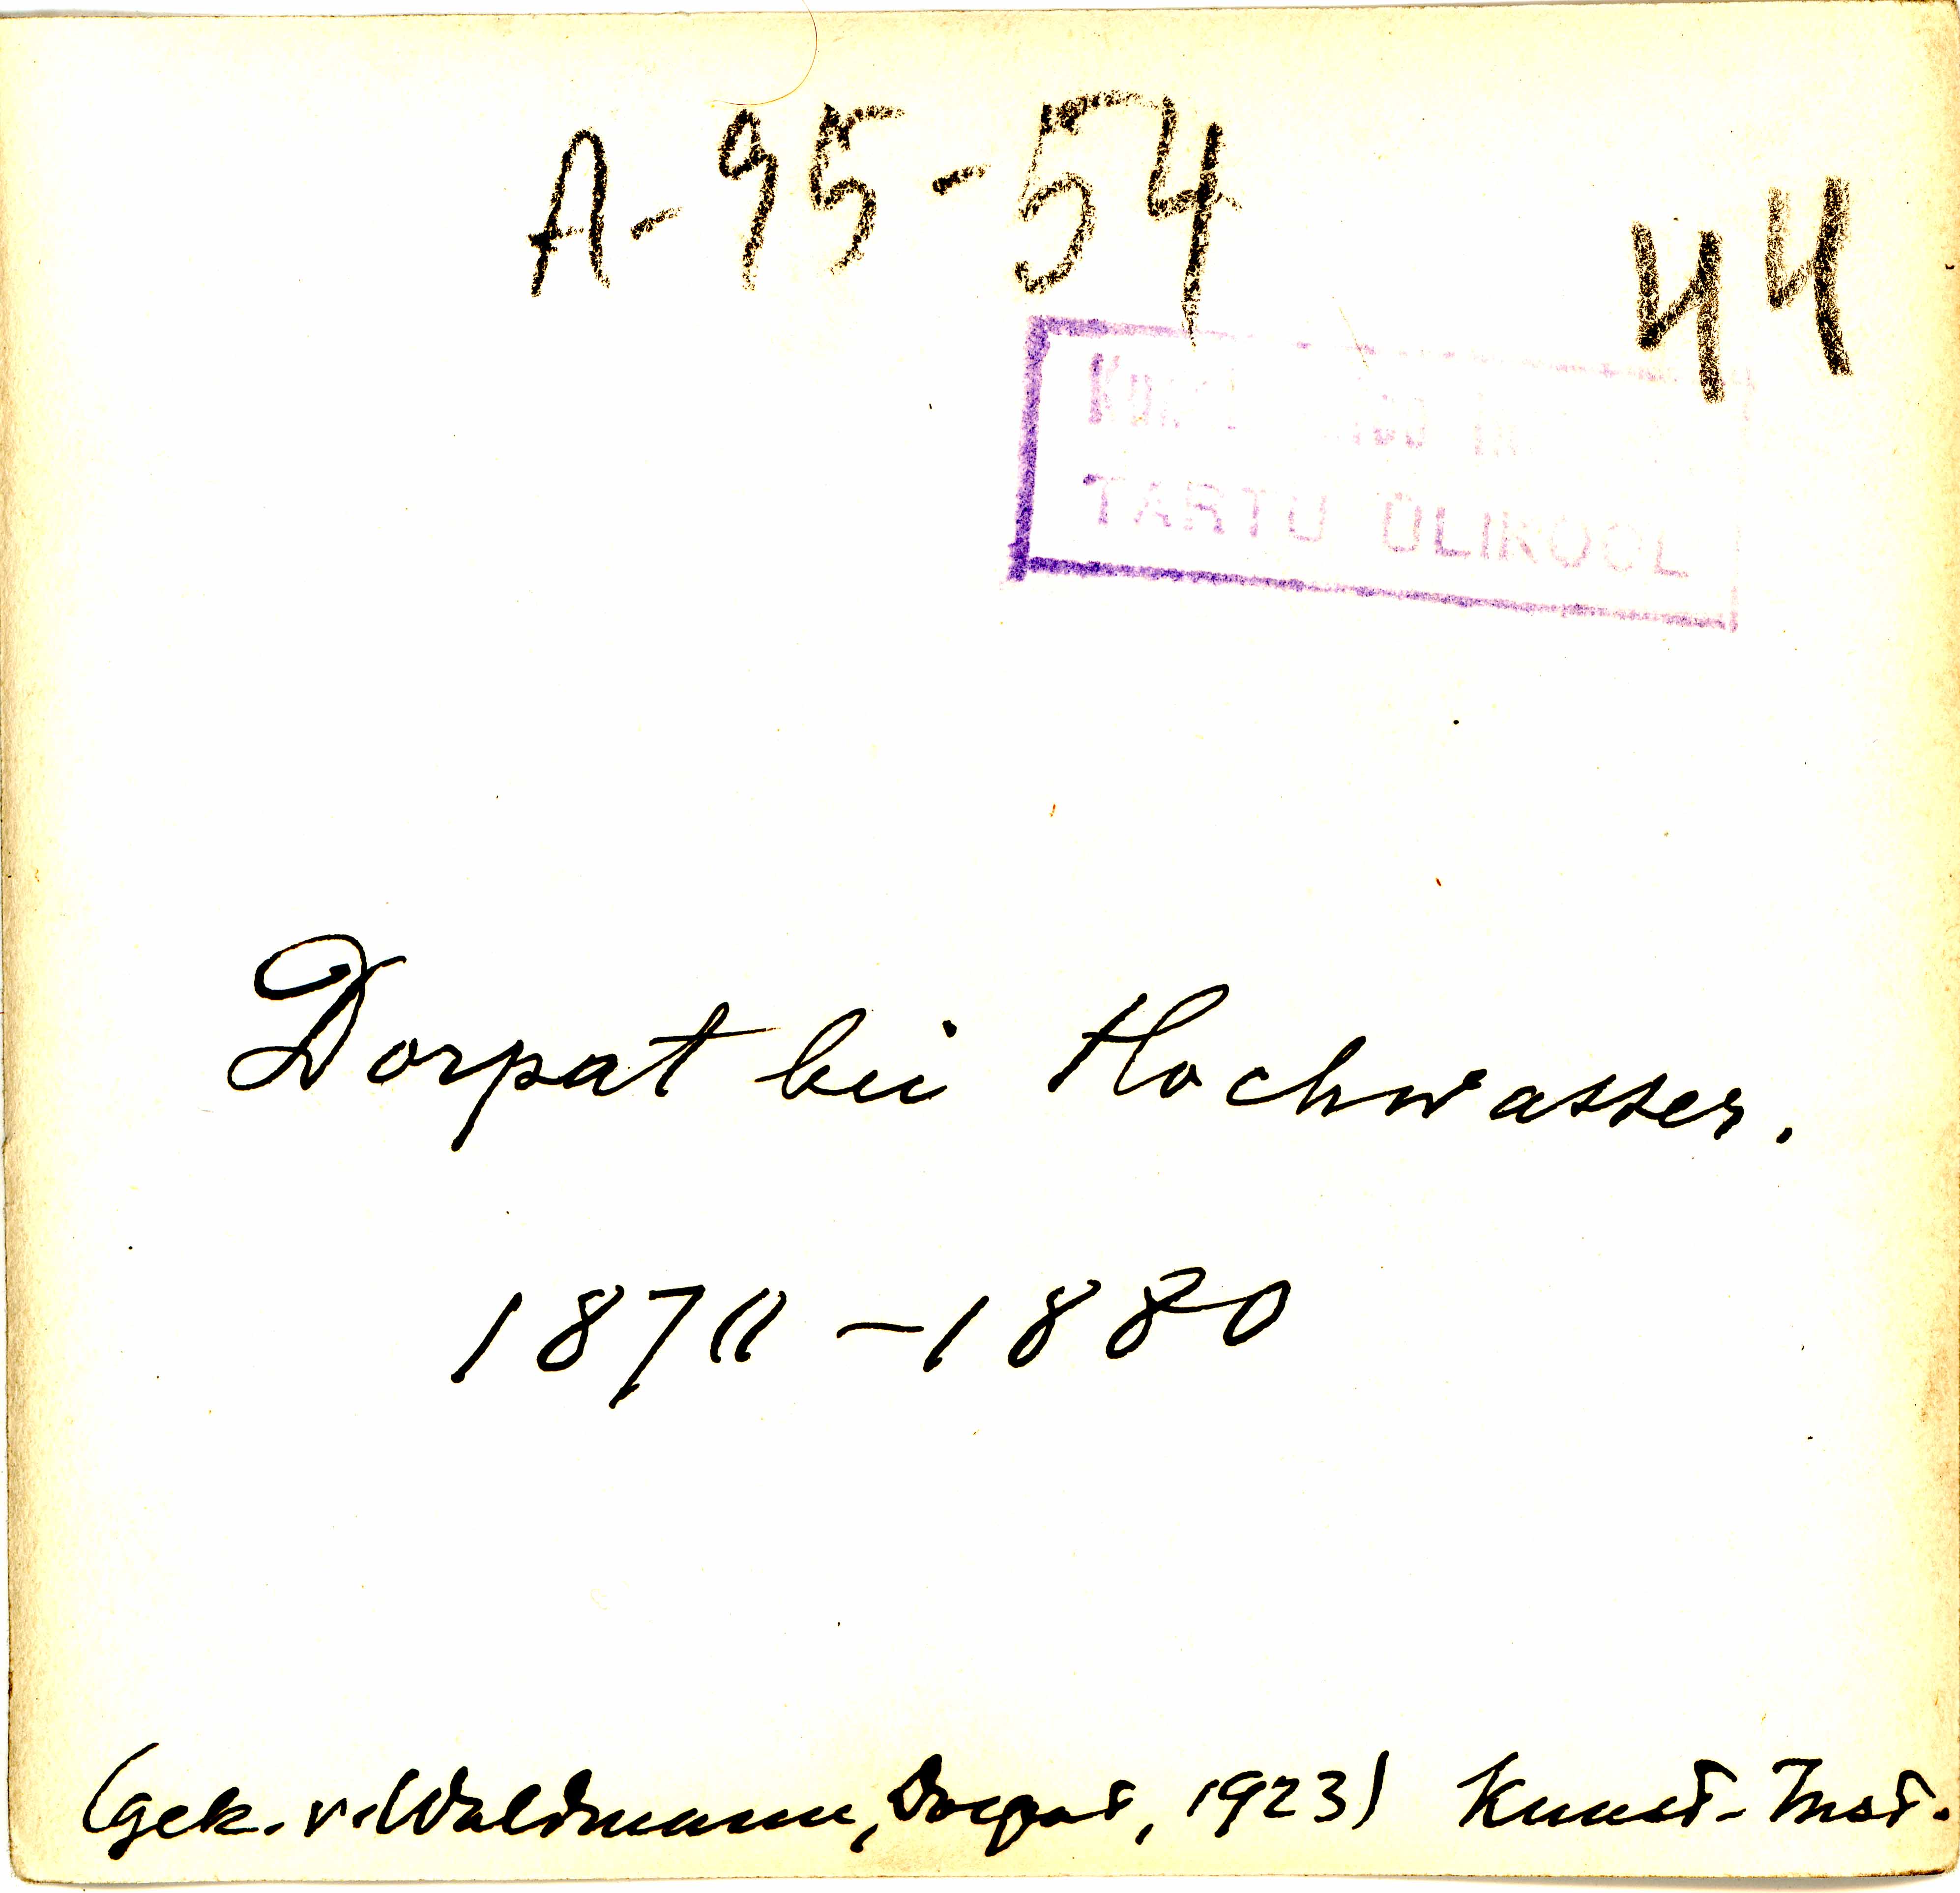 A-95-54
44
TARTU ÜLIKOOL
Dorpat bei Hochwasser.
1870-1880
(gek. v. Waldmann, Dorpat, 1923) Kunst-Inst.